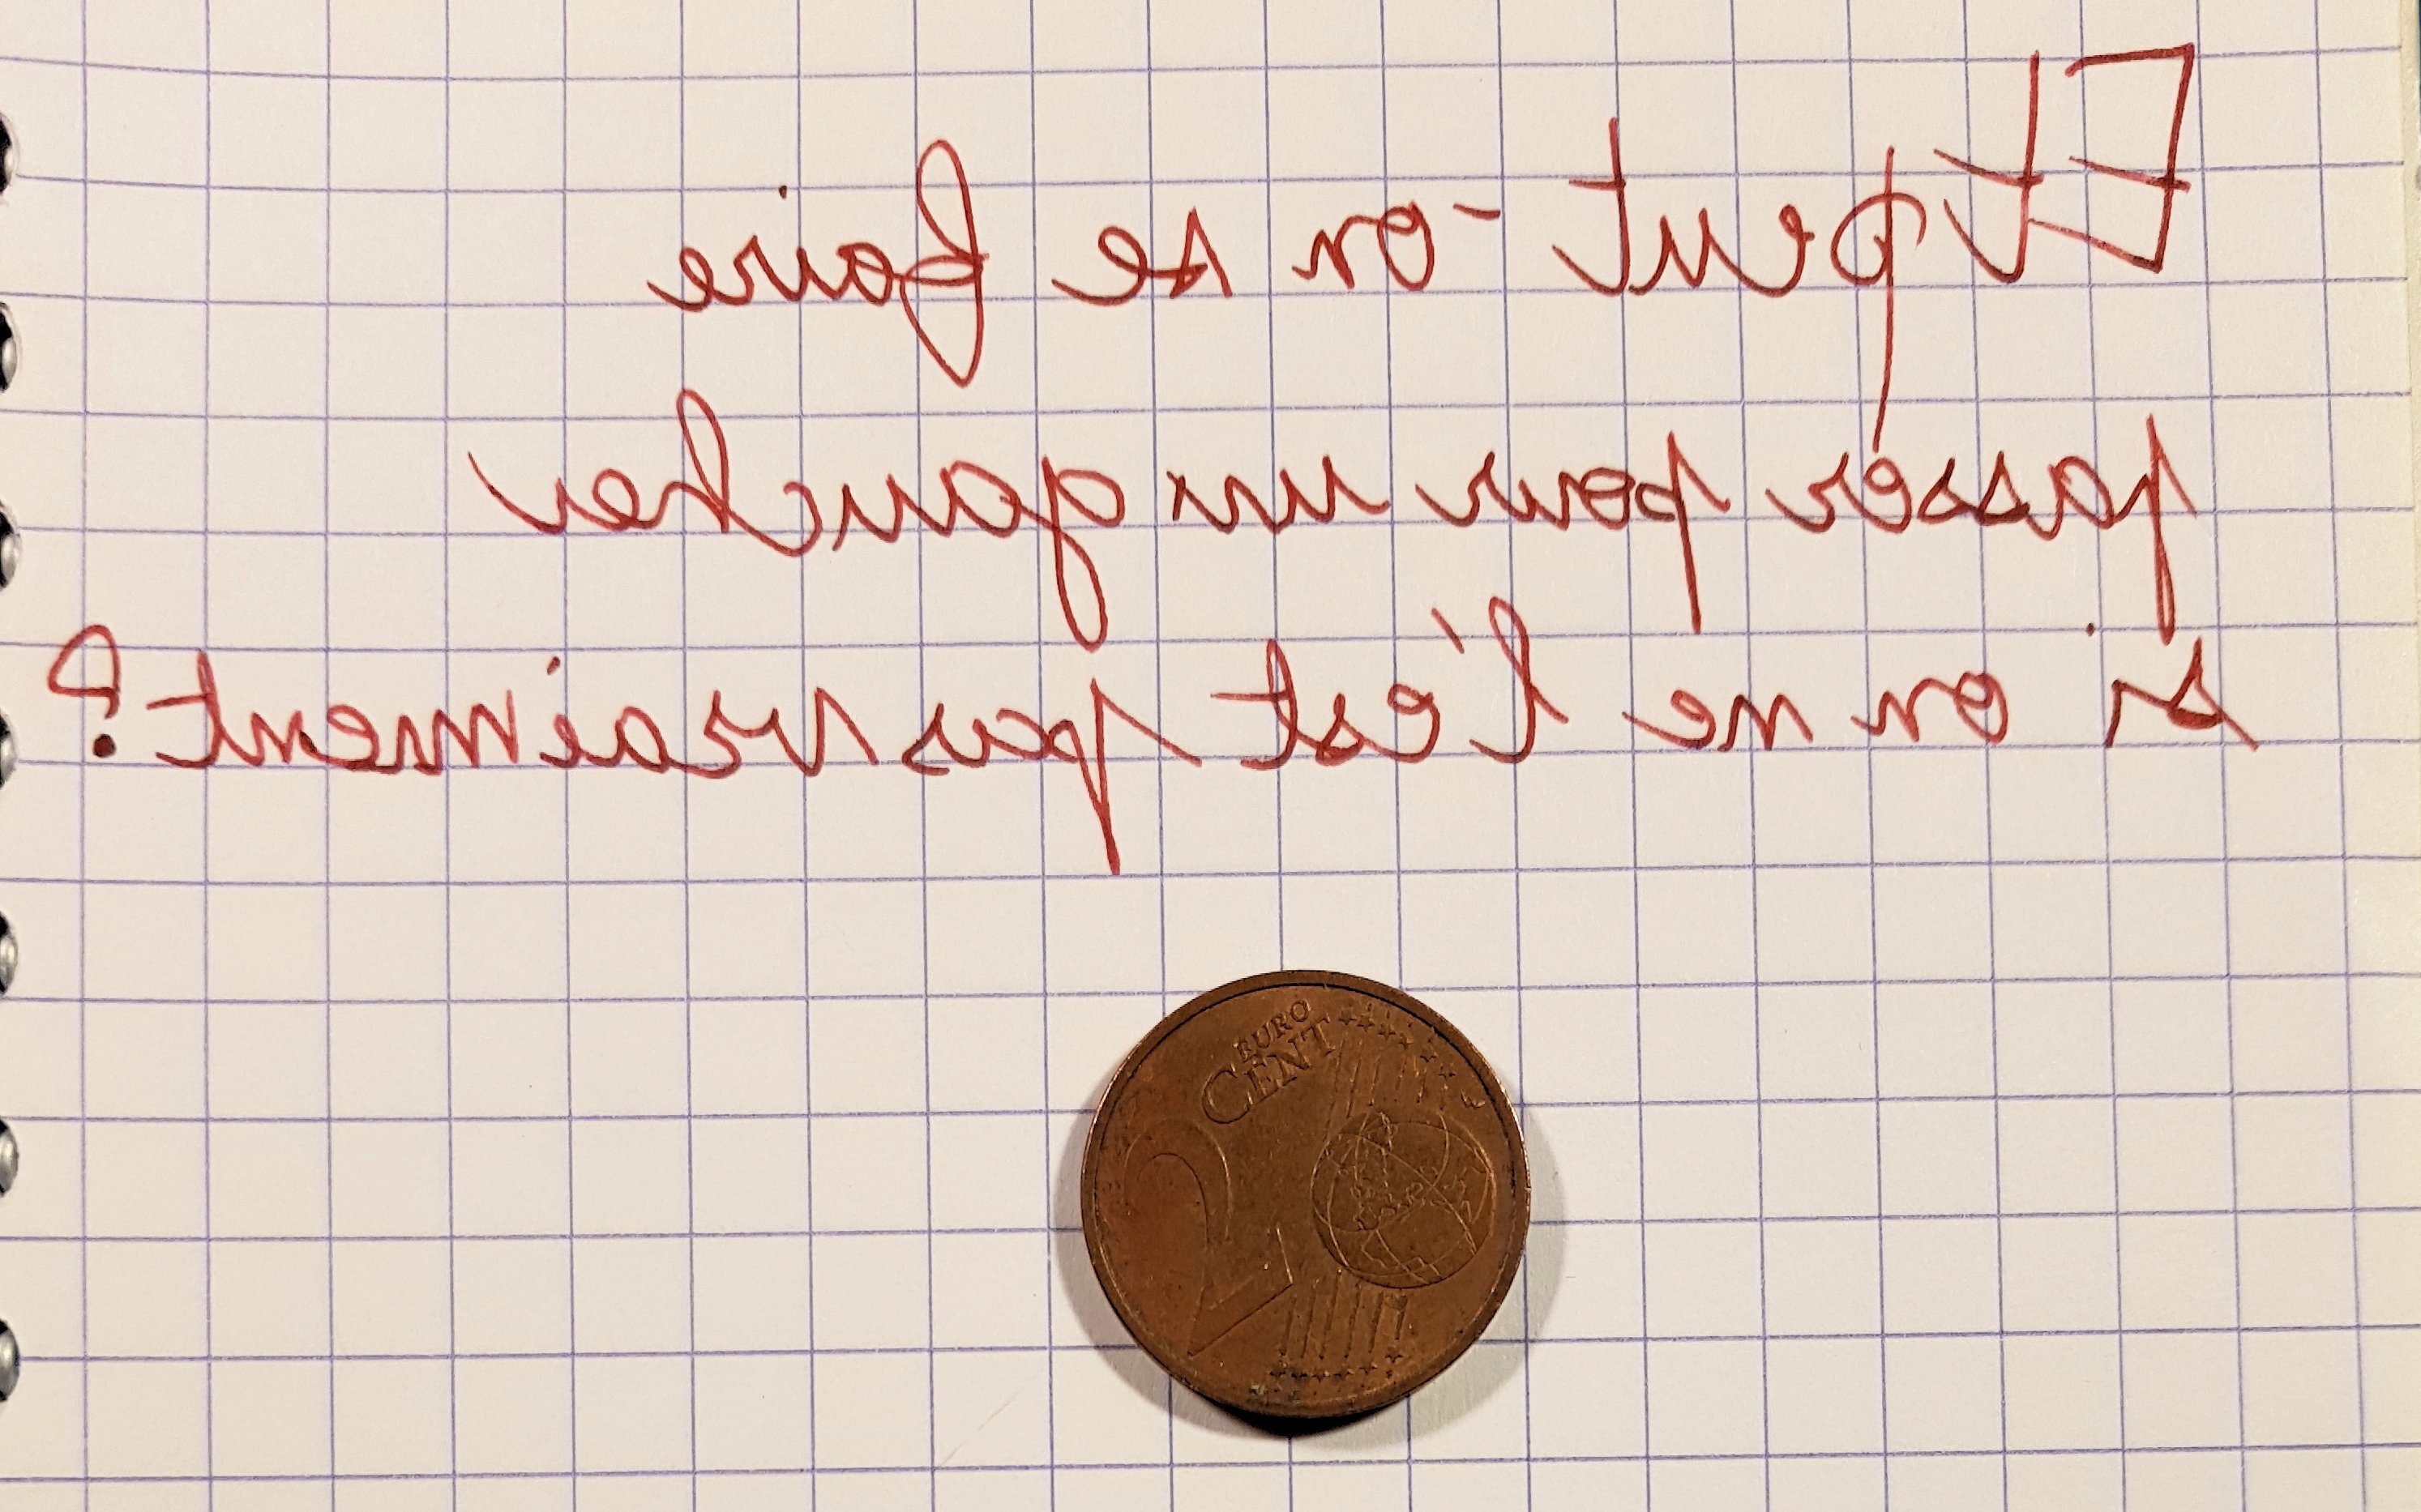 Et peut-on se faire
passer pour un gaucher
si on ne l'est pas vraiment?
EURO
CENT
2